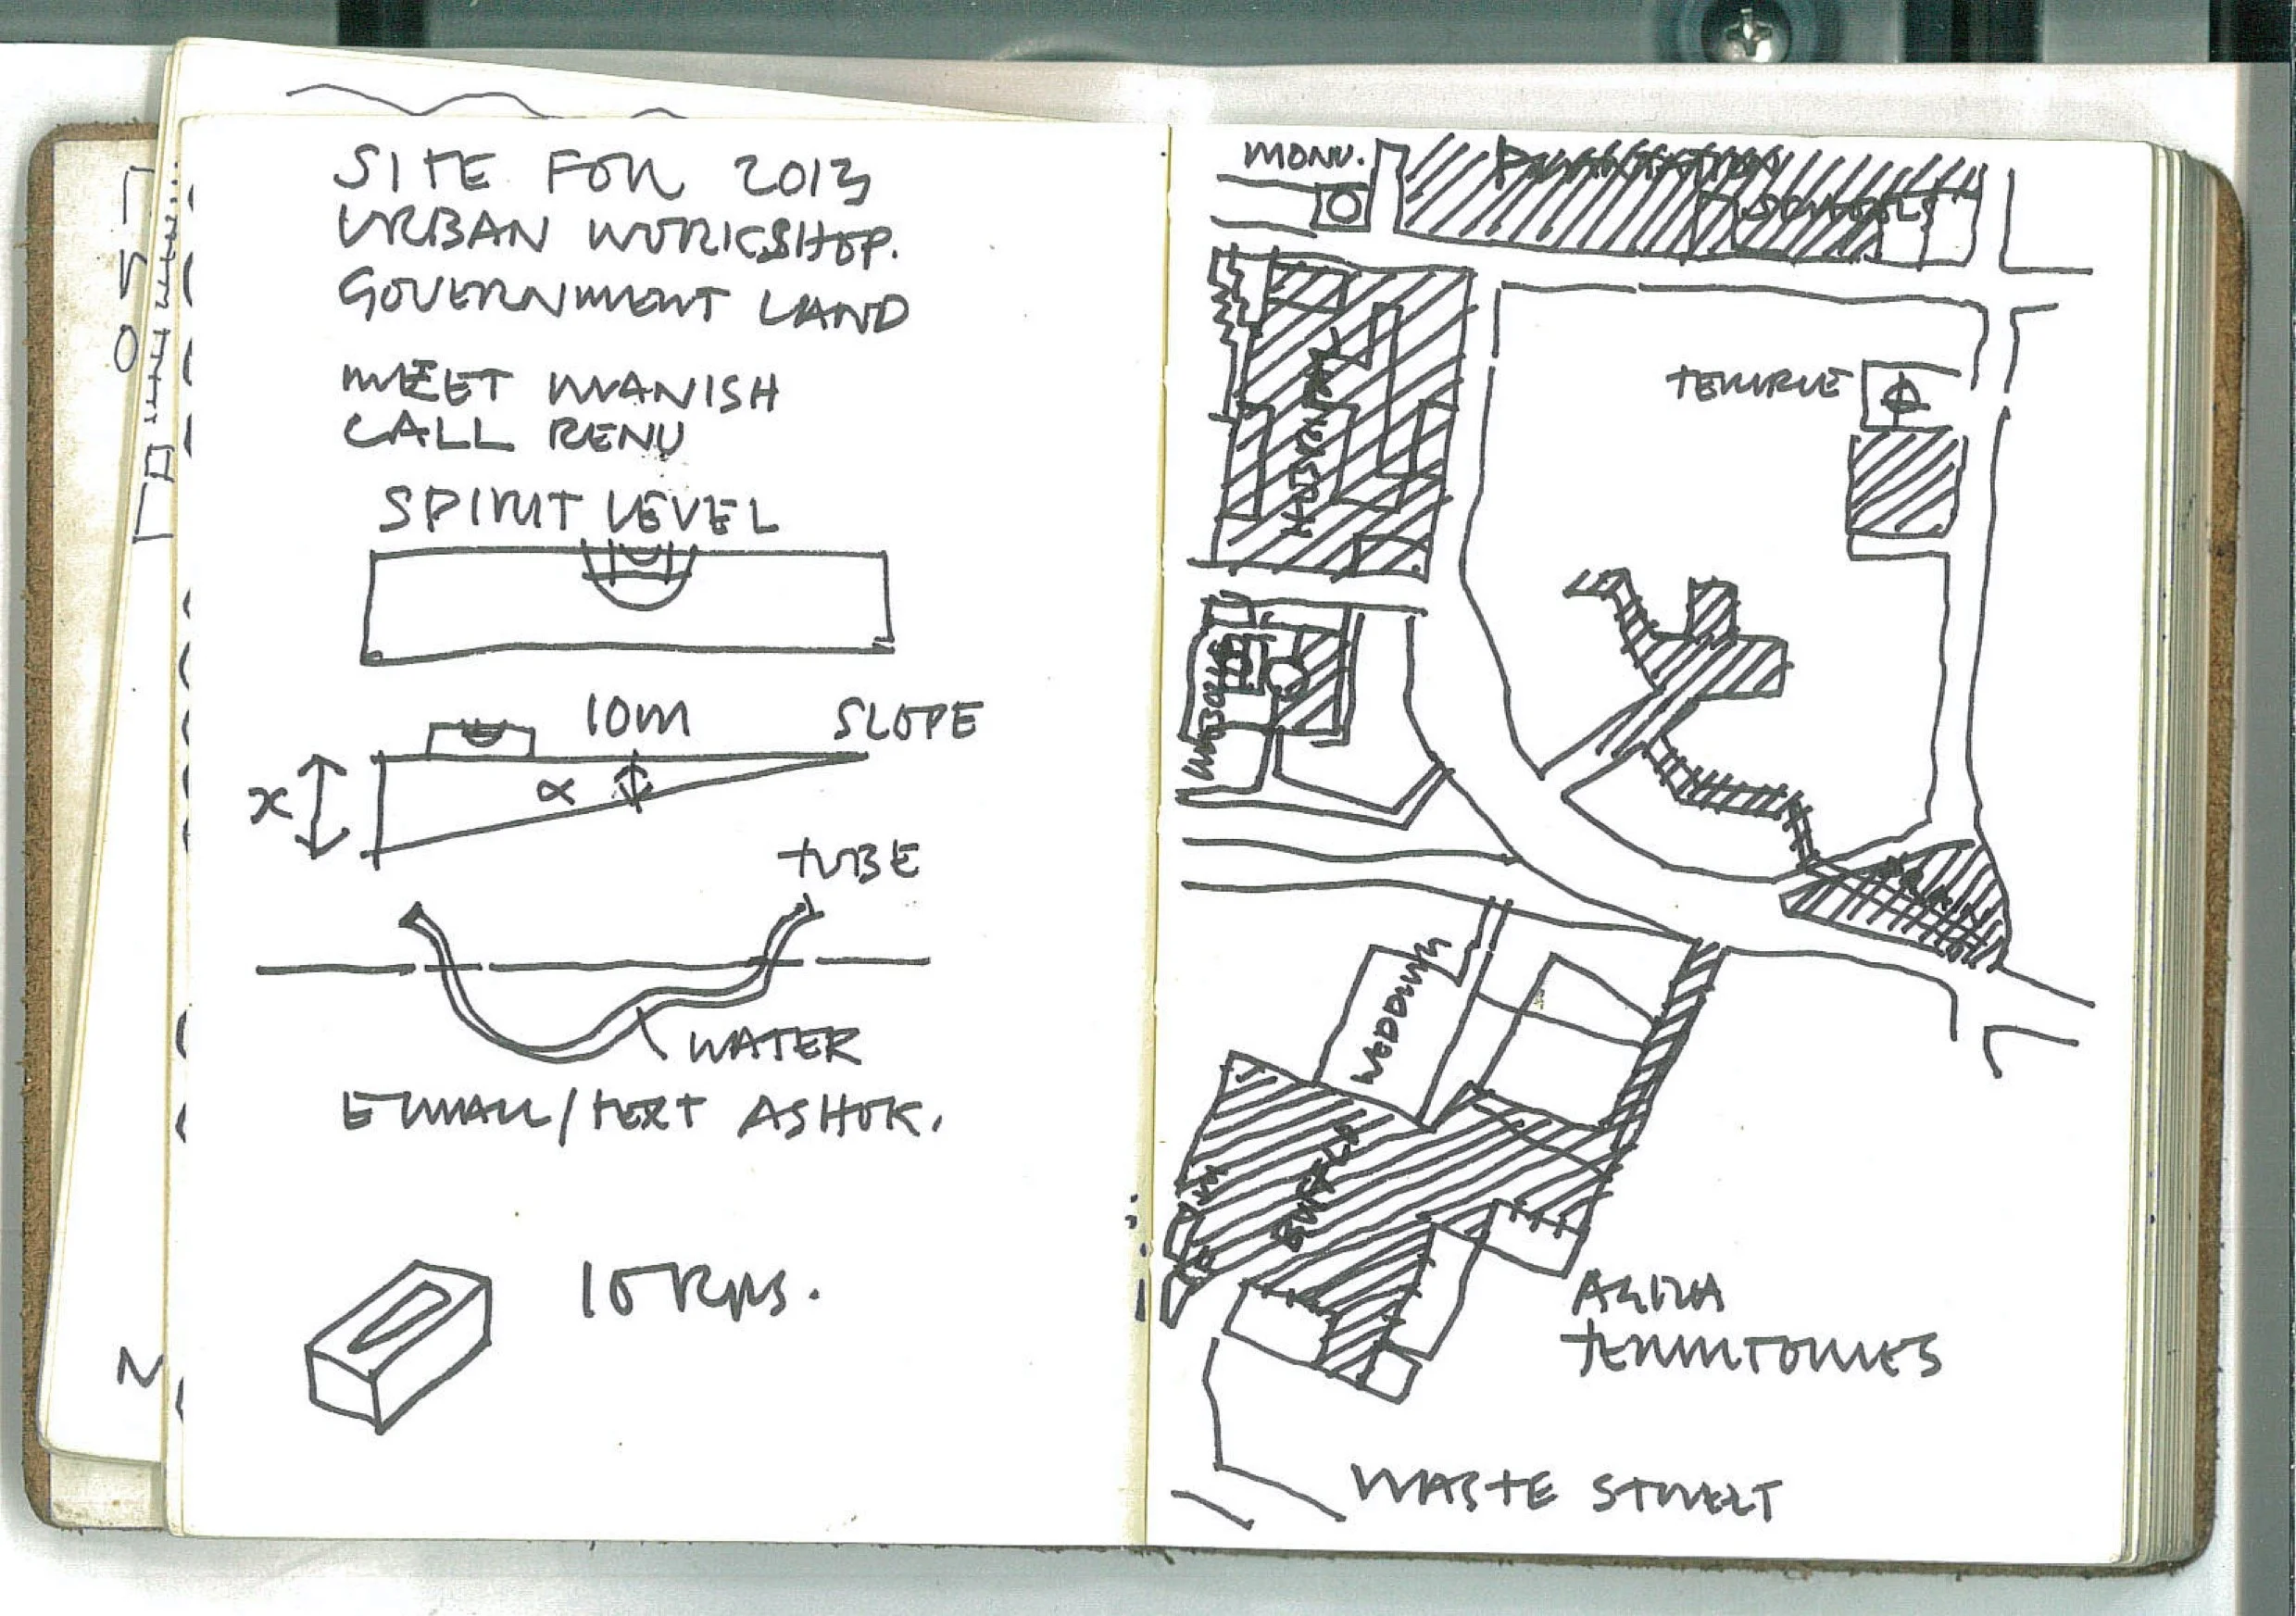 SITE FOR 2013
URBAN WORKSHOP.
GOVERNMENT LAND
MEET MANISH
CALL RENU
SPIRIT LEVEL
10m SLOPE
x
α
TUBE
WATER
EMAIL/TEXT ASHOK.
MONU.
TEMPLE
HOSPITAL
WEDDING
AGRA
TERRITORIES
WASTE STREET